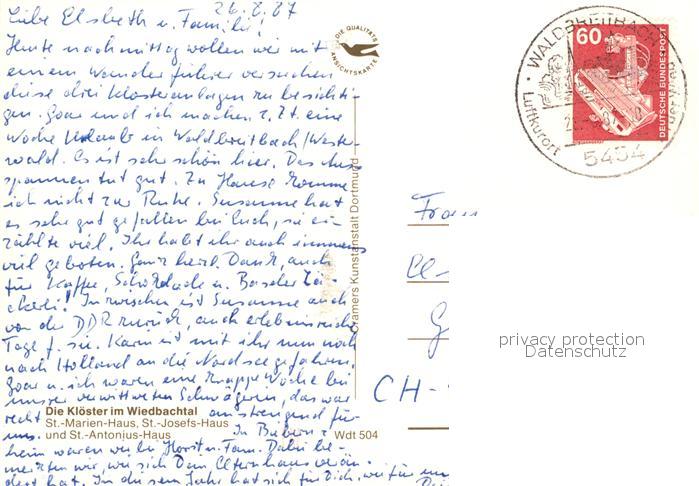 26.8.87
Liebe Elsbeth u. Familie!
Heute nachmittag wollen wir mit
einem Wanderführer versuchen
diese drei Klosteranlagen zu besichti-
gen. Goar und ich machen z. Zt. eine
Woche Urlaub in Waldbreitbach/Wester-
wald. Es ist sehr schön hier. Das Aus-
spannen tut gut. Zu Hause komme
ich nicht zur Ruhe. Susanne hat
es sehr gut gefallen bei Euch, sie er-
zählte viel. Ihr habt ihr auch immens
viel geboten. Ganz herzl. Dank, auch
für Kaffee, Schokolade u. Baseler
Inzwischen ist Susanne auch
von der DDR zurück, auch erlebnisreiche
Tage f. sie. Karin ist mit ihr nun noch
nach Holland an die Nordsee gefahren.
Goar u. ich waren eine knappe Woche bei
unserer verwitweten Schwägerin, das war
recht anstrengend für
uns. In
heim waren wir bei Horst u. Fam. Dabei be-
merkten wir, wie sich Dein Elternhaus verän-
dert hat. In diesem Jahr hat sich für Dich, wie für
Die Klöster im Wiedbachtal
St.-Marien-Haus, St.-Josefs-Haus
und St.-Antonius-Haus
Wdt 504
DIE QUALITÄTS
ANSICHTSKARTE
Cramers Kunstanstalt Dortmund
WALDBREITBACH
Luftkurort
5454
60
DEUTSCHE BUNDESPOST
Frau
CH-
privacy protection
Datenschutz